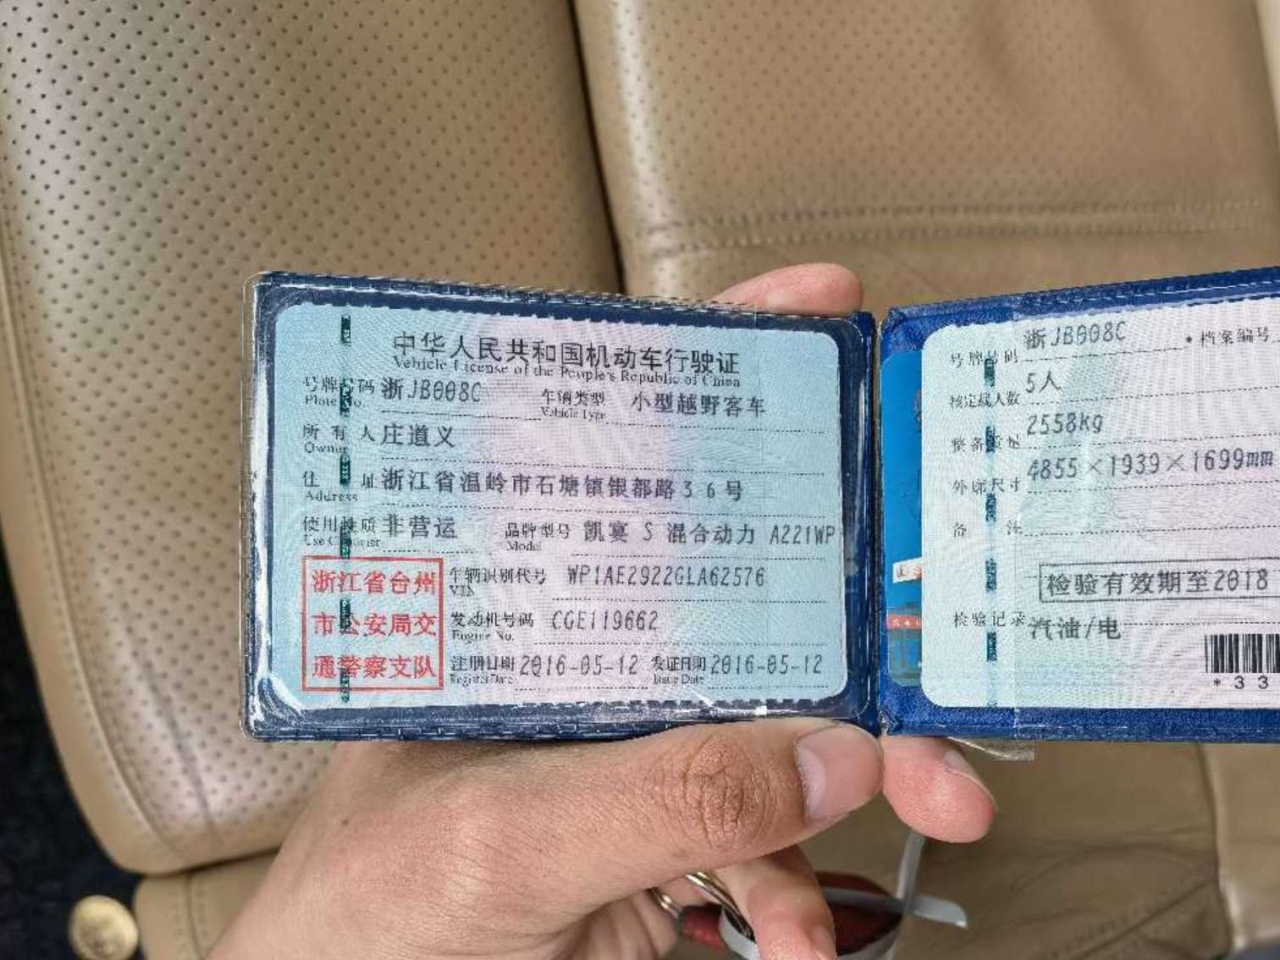 中华人民共和国机动车行驶证
Vehicle License of the People's Republic of China
号牌号码 浙JB008C 车辆类型 小型越野客车
Plate No. Vehicle Type
所有人 庄道义
Owner
住址 浙江省温岭市石塘镇银都路36号
Address
使用性质 非营运 品牌型号 凯宴 S 混合动力 A221WP
Use Character Model
浙江省台州
市公安局交
通警察支队
车辆识别代号 WP1AE2922GLA62576
VIN
发动机号码 CGE119662
Engine No.
注册日期 2016-05-12 发证日期 2016-05-12
Register Date Issue Date
号牌号码 浙JB008C 档案编号
核定载人数 5人
整备质量 2558kg
外廓尺寸 4855×1939×1699mm
备注
检验有效期至2018
检验记录
汽油/电
*33